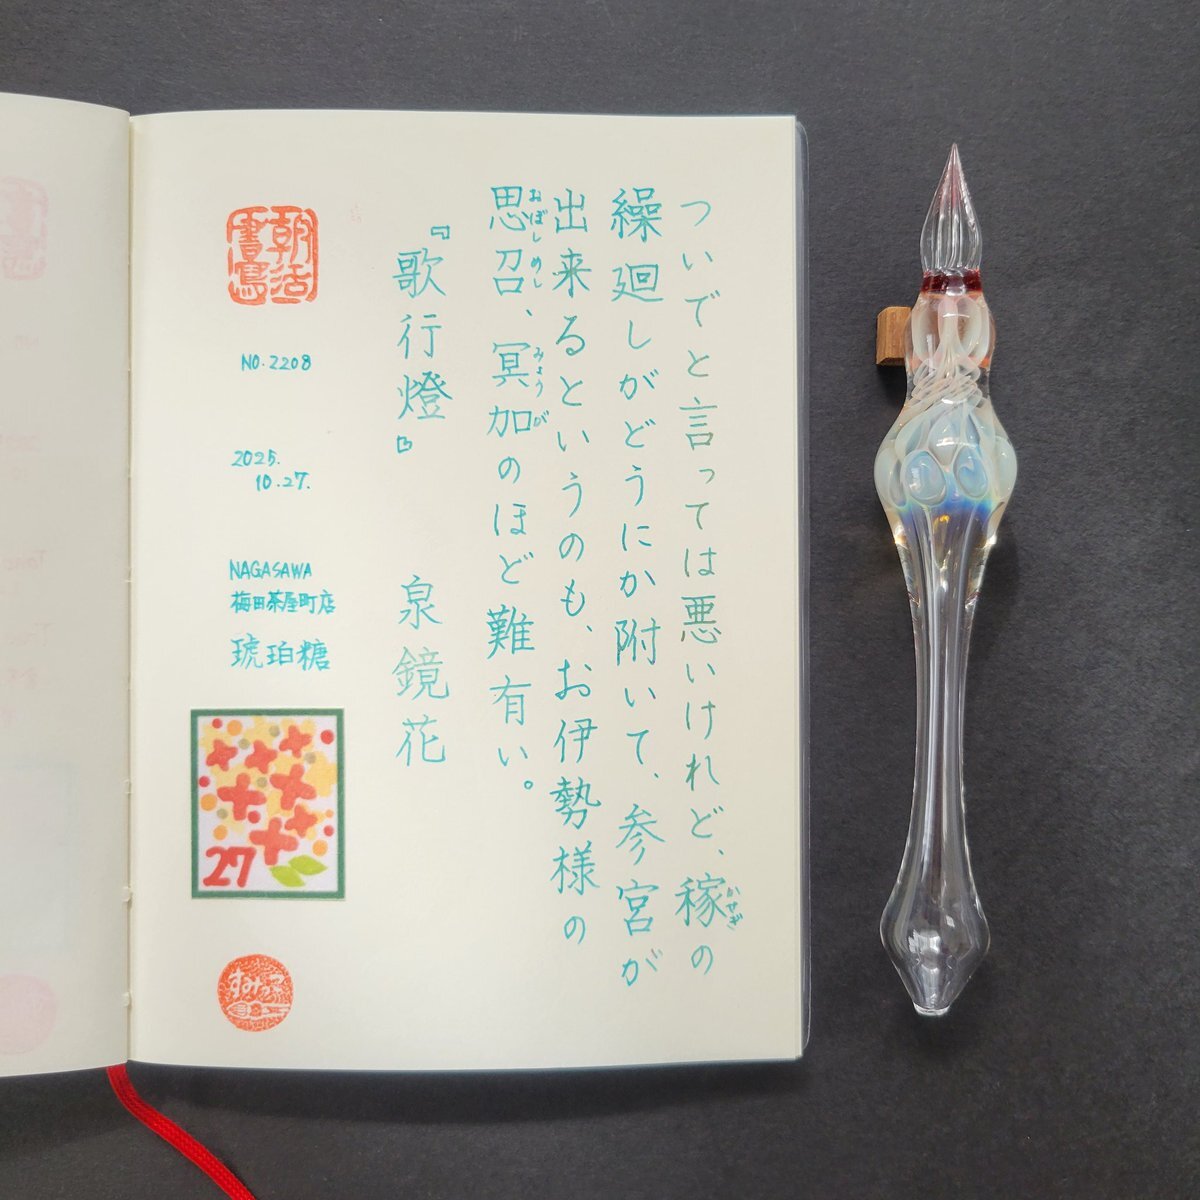 ついでと言っては悪いけれど、稼の
かせぎ
繰廻しがどうにか附いて、参宮が
出来るというのも、お伊勢様の
思召、冥加のほど難有い。
おぼしめし
みょうが
『歌行燈』 泉鏡花
朝活書写
NO.2208
2025.
10.27.
NAGASAWA
梅田茶屋町店
琥珀糖
27